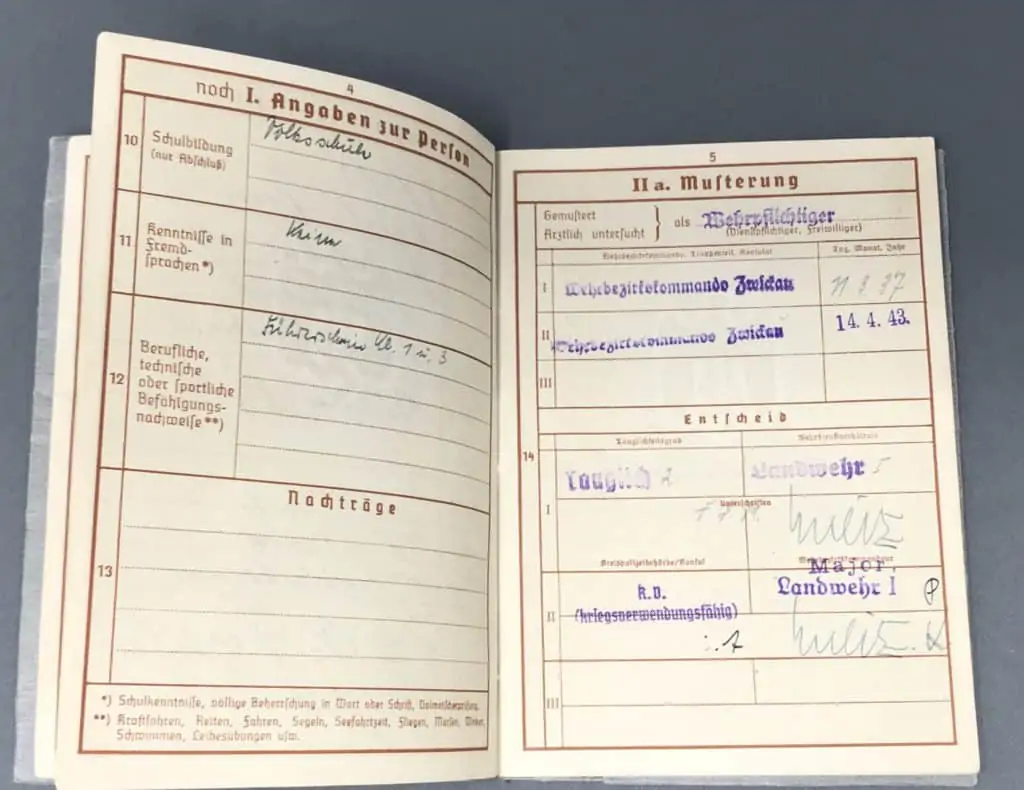 4
noch I. Angaben zur Person
10
Schulbildung
(nur Abschluß)
Volksschule
11
Kenntnisse in
Fremd-
sprachen*)
Keine
12
Berufliche,
technische
oder sportliche
Befähigungs-
nachweise**)
Führerschein Kl. 1 u. 3
Nachträge
13
*) Schulkenntnisse, völlige Beherrschung in Wort oder Schrift, Dolmetscherprüfung.
**) Kraftfahren, Reiten, Fahren, Segeln, Seefahrtzeit, Fliegen, Morsen, Winken,
Schwimmen, Leibesübungen usw.
5
IIa. Musterung
Gemustert
Ärztlich untersucht } als Wehrpflichtiger
(Dienstpflichtiger, Freiwilliger)
Wehrbezirkskommando, Truppenteil, Konsulat
Tag, Monat, Jahr
I Wehrbezirkskommando Zwickau
II Wehrbezirkskommando Zwickau 14. 4. 43.
III
Entscheid
14
Tauglichkeitsgrad
Wehrdienstverhältnis
Tauglich 2
Landwehr
I
Unterschriften
Kreispolizeibehörde/Konsul
Wehrbezirkskommandeur
Major.
II
k.v.
(kriegsverwendungsfähig)
Landwehr I
III